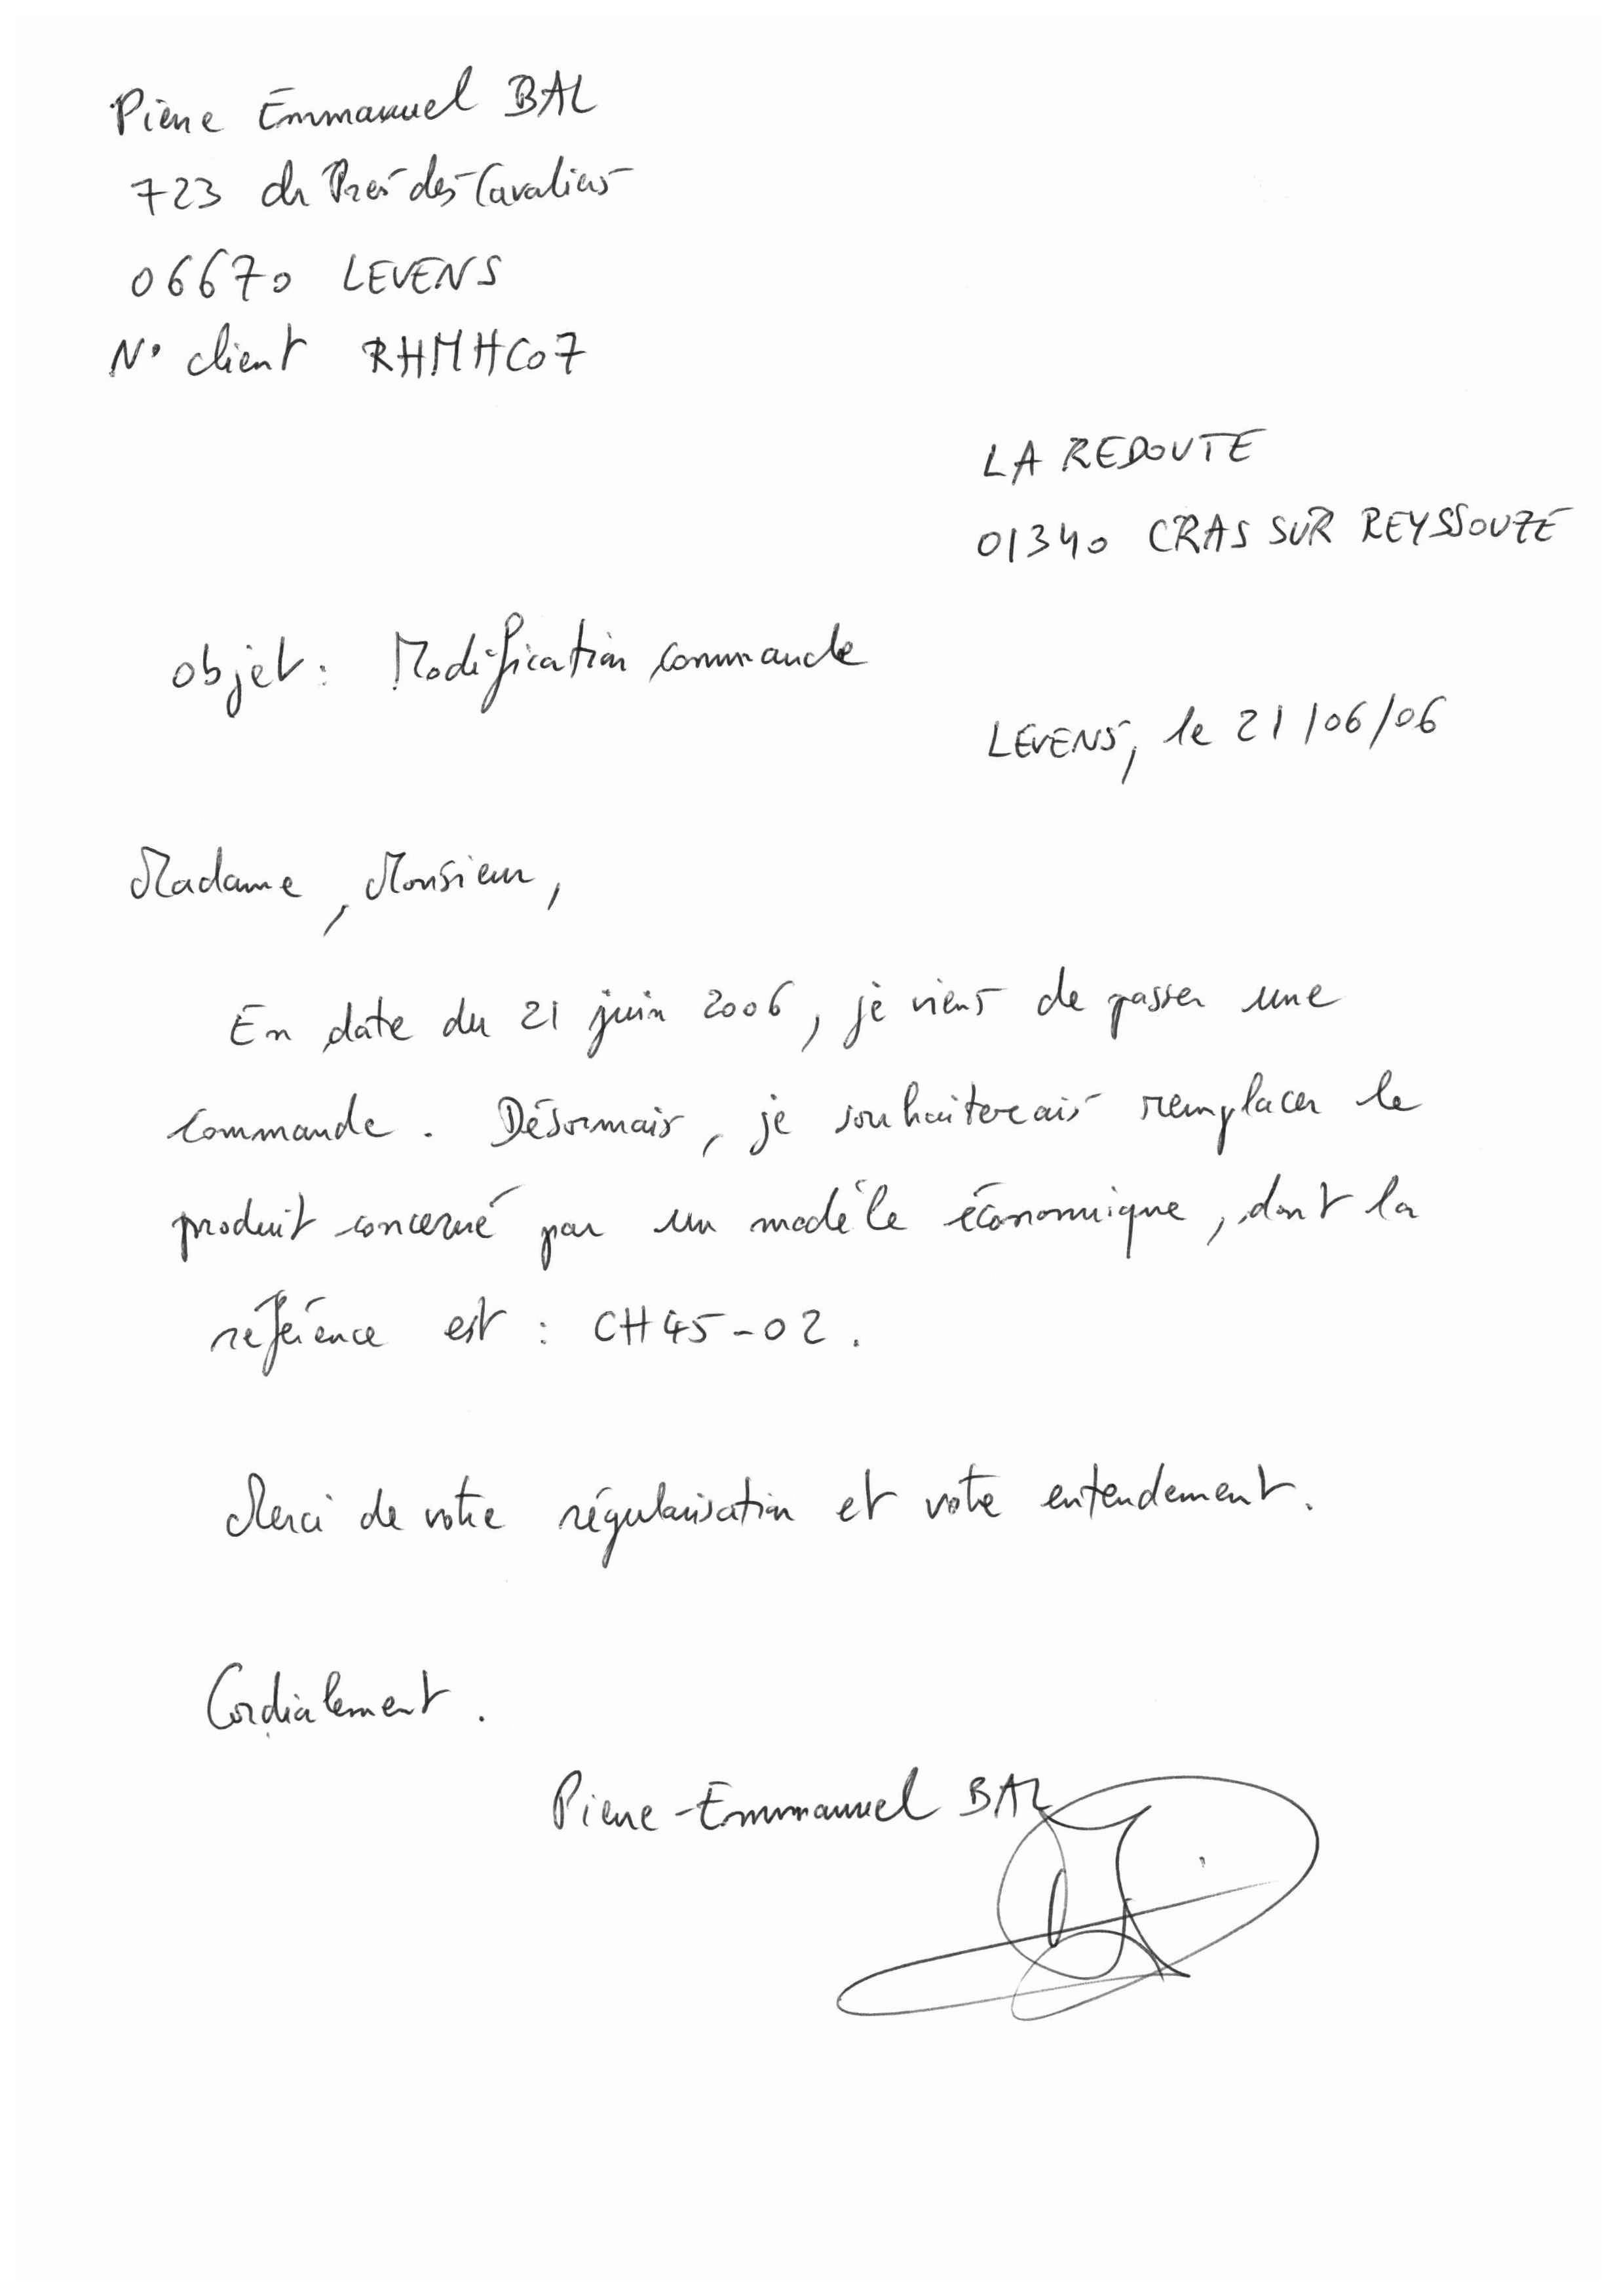 Pierre Emmanuel BAL
723 ch Prés des Cavaliers
06670 LEVENS
N° client RHMHC07
LA REDOUTE
01340 CRAS SUR REYSSOUZE
objet : Modification commande
LEVENS, le 21/06/06
Madame, Monsieur,
En date du 21 juin 2006, je viens de passer une
commande. Désormais, je souhaiterais remplacer le
produit concerné par un modèle économique, dont la
référence est : CH45-02.
Merci de votre régularisation et votre entendement.
Cordialement.
Pierre-Emmanuel BAL